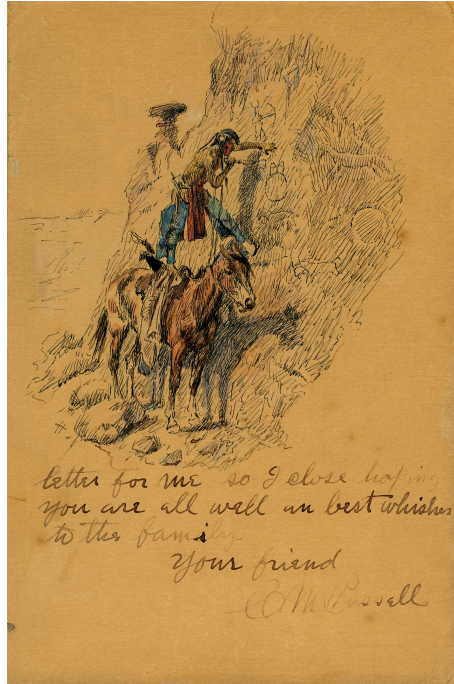 letter for me so I close hoping
you are all well an best whishes
to the family
Your friend
C M Russell